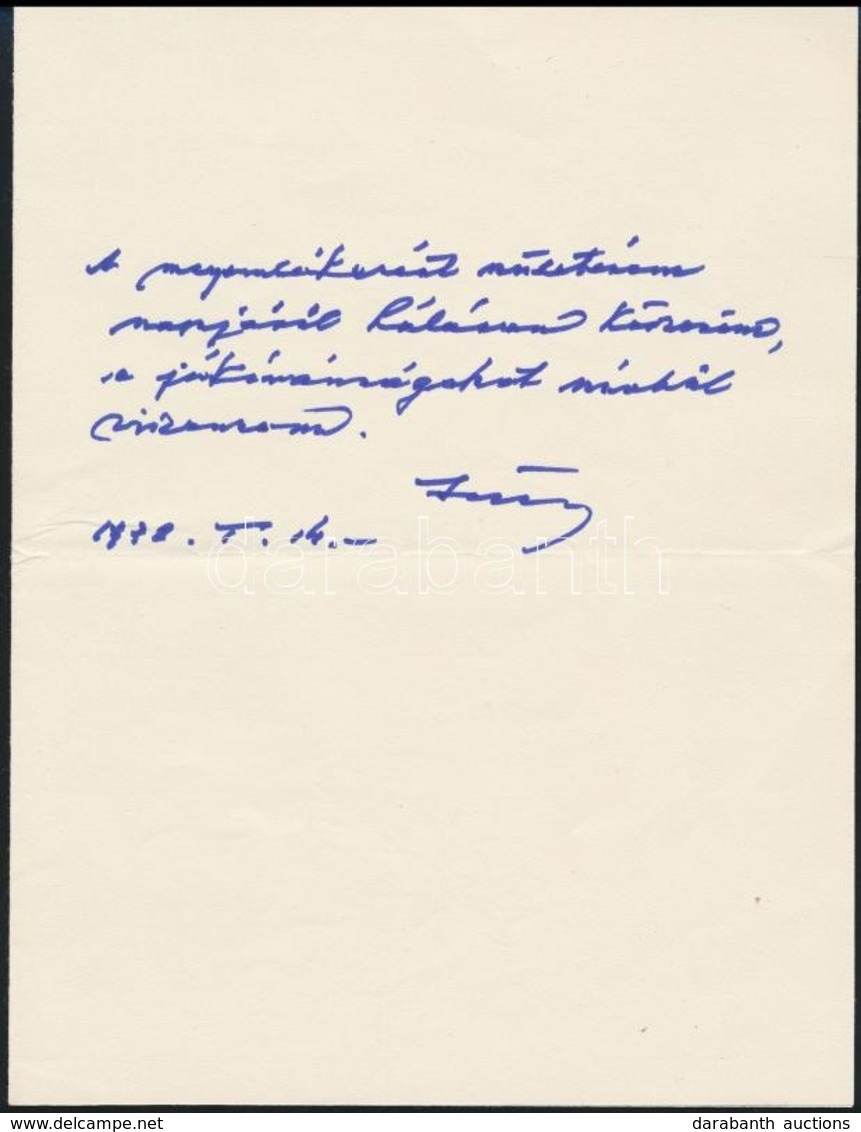 A megemlékezést születésem
napjáról hálásan köszönöm,
a jókívánságokat szívből
viszonzom.
1978. I. 14.-
darabanth
www.delcampe.net
darabanth auctions